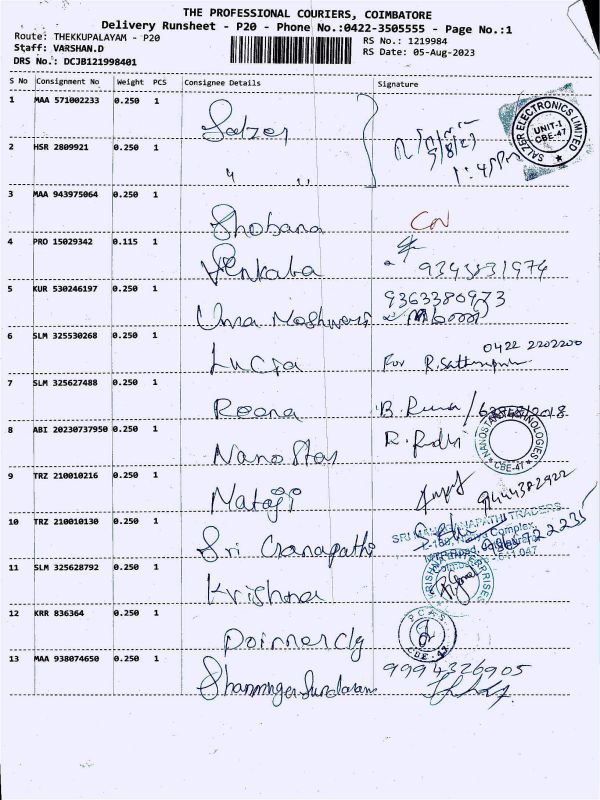 THE PROFESSIONAL COURIERS, COIMBATORE
Delivery Runsheet - P20 - Phone No.:0422-3505555 - Page No.:1
Route: THEKKUPALAYAM - P20
RS No.: 1219984
Staff: VARSHAN.D
RS Date: 05-Aug-2023
DRS No.: DCJB121998401
S No Consignment No Weight PCS Consignee Details Signature
1 MAA 571002233 0.250 1 Salzer
SALZER ELECTRONICS LIMITED
UNIT-I
CBE-47
2 HSR 2809921 0.250 1 " "
1:45pm
3 MAA 943975064 0.250 1 Shobana
4 PRO 15029342 0.115 1 Venkaba 9343831974
5 KUR 530246197 0.250 1 Uma Mashwari 9363380973
6 SLM 325530268 0.250 1 Lucia For
0422 2202200
7 SLM 325627488 0.250 1 Reena B. Rena/
8 ABI 20230737950 0.250 1 Nano Star
NANOSTAR TECHNOLOGIES
CBE-47
9 TRZ 210010216 0.250 1 Nataji 9444382922
10 TRZ 210010130 0.250 1 Sri Ganapathi
SRI MAHA GANAPATHI TRADERS
Complex,
11 SLM 325628792 0.250 1 Krishna
KRISHNA ENTERPRISES
12 KRR 836364 0.250 1 Doimercly
P C A S
CBE-47
13 MAA 938074650 0.250 1 Shanmuga Sundaram 9994326905